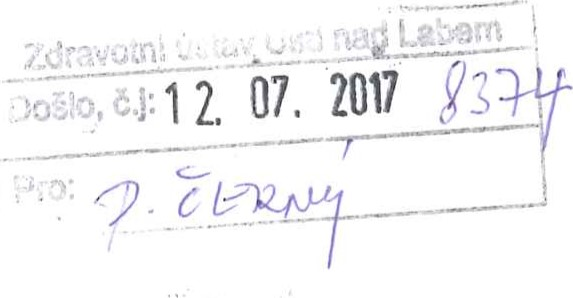 Zdravotní ústav Ústí nad Labem
Došlo, č.j: 12. 07. 2017 8374
Pro: P. ČERNÝ